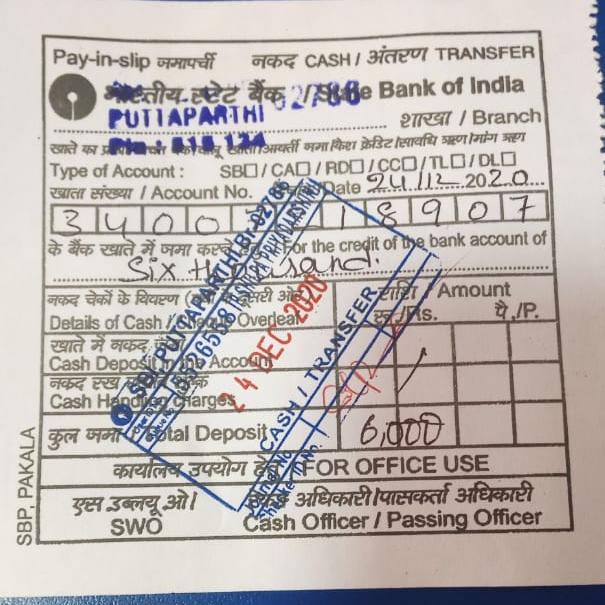 Pay-in-slip जमापर्ची नकद CASH / अंतरण TRANSFER
भारतीय स्टेट बैंक / State Bank of India
02786
PUTTAPARTHI
Pin : 515 134
शाखा / Branch
Type of Account : SB□ / CA□ / RD□ / CC□ / TL□ / DL□
खाता संख्या / Account No. Date 24/12 2020
3400 18907
के बैंक खाते में जमा For the credit of the bank account of
Six thousand.
नकद चेकों के विवरण राशि / Amount
Details of Cash / Overleaf रु./Rs. पै./P.
खाते में नकद
Cash Deposit Account
नकद
Cash Handling charges
कुल जमा Total Deposit 6,000
कार्यालय उपयोग FOR OFFICE USE
एस.डब्ल्यू.ओ। अधिकारी/पासकर्ता अधिकारी
SWO Cash Officer / Passing Officer
SBP, PAKALA
SBI, PUTTAPARTHI
24 DEC 2020
CASH / TRANSFER